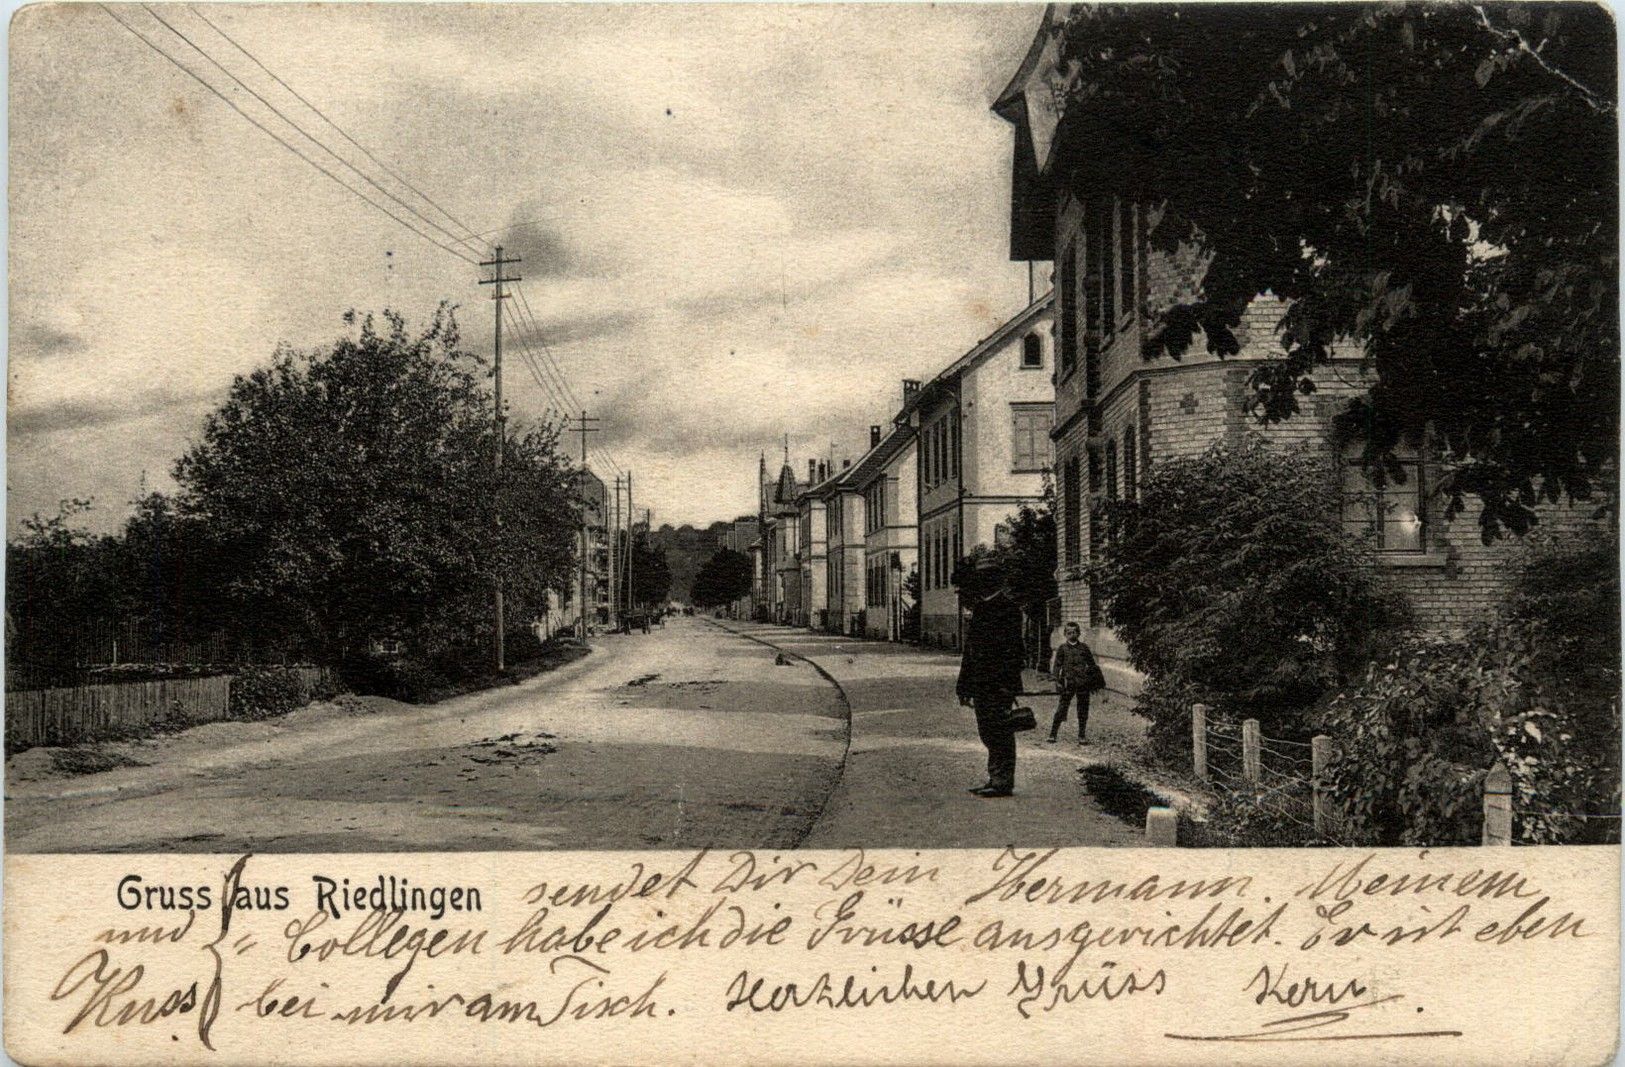 Gruss aus Riedlingen sendet Dir Dein Hermann. Meinem
und " Collegen habe ich die Grüsse ausgerichtet. Er ist eben
Kuss bei mir am Tisch. Herzlichen Grüss Kern.